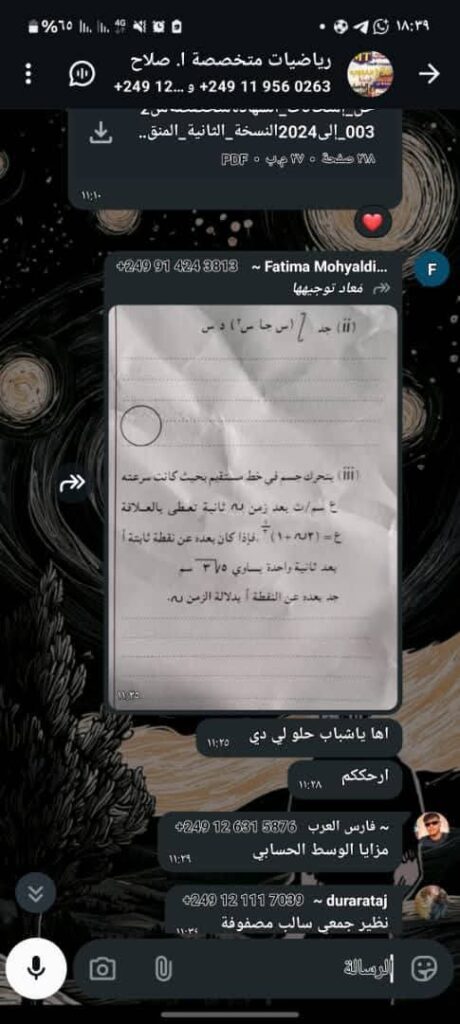 ١٨:٣٩
4G
%٦٥
رياضيات متخصصة ا. صلاح
+249 11 956 0263 و +249 12...
003_إلى2024النسخة_الثانية_المنق..
٢١٨ صفحة • ٢٧ م.ب • PDF
١١:١٠
❤️
F
+249 91 424 3813 ~ Fatima Mohyaldi...
مُعاد توجيهها
(ii) جد ∫ (س جا س٢) د س
(iii) يتحرك جسم في خط مستقيم بحيث كانت سرعته
ع سم/ث بعد زمن ن ثانية تعطى بالعلاقة
فإذا كان بعده عن نقطة ثابتة أ
بعد ثانية واحدة يساوي
سم
جد بعده عن النقطة أ بدلالة الزمن ن.
١١:٢٥
اها ياشباب حلو لي دي
١١:٢٥
ارحككم
١١:٢٨
+249 12 631 5876 ~ فارس العرب
مزايا الوسط الحسابي
١١:٢٩
+249 12 111 7039 ~ durarataj
نظير جمعي سالب مصفوفة
الرسالة